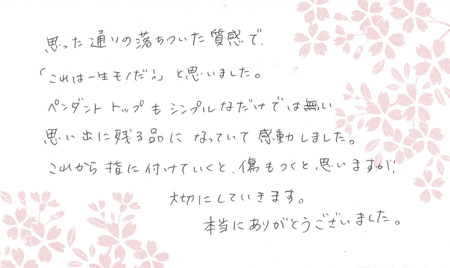 思った通りの落ちついた質感で、
「これは一生モノだ!」と思いました。
ペンダントトップもシンプルなだけでは無い
思い出に残る品になっていて感動しました。
これから指に付けていくと、傷もつくと思いますが、
大切にしていきます。
本当にありがとうございました。